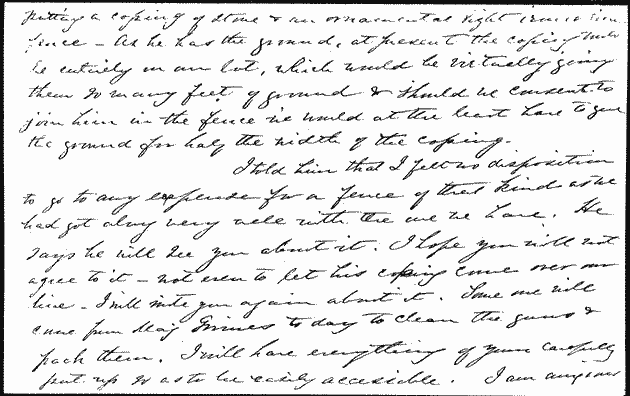 putting a coping of stone & an ornamental light iron
fence - As he has the ground, at present the coping must
be entirely on our lot, which would be virtually giving
them so many feet of ground & should we consent to
join him in the fence we would at the least have to give
the ground for half the width of the coping.
I told him that I felt no disposition
to go to any expense for a fence of that kind as we
had got along very well with the one we have. He
says he will see you about it. I hope you will not
agree to it - not even to let his coping come over our
line - I will write you again about it. Some one will
come from Maj Grimes to day to clean the guns &
pack them. I will have everything of yours carefully
put up so as to be easily accessible. I am anxious